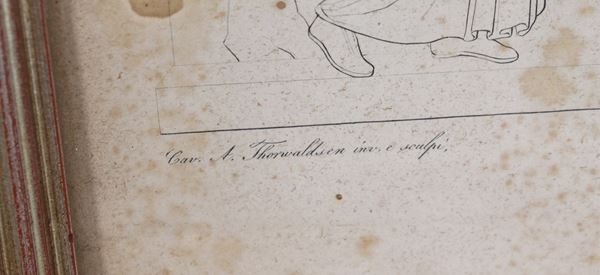 Cav. A. Thorwaldsen inv. e sculpì.